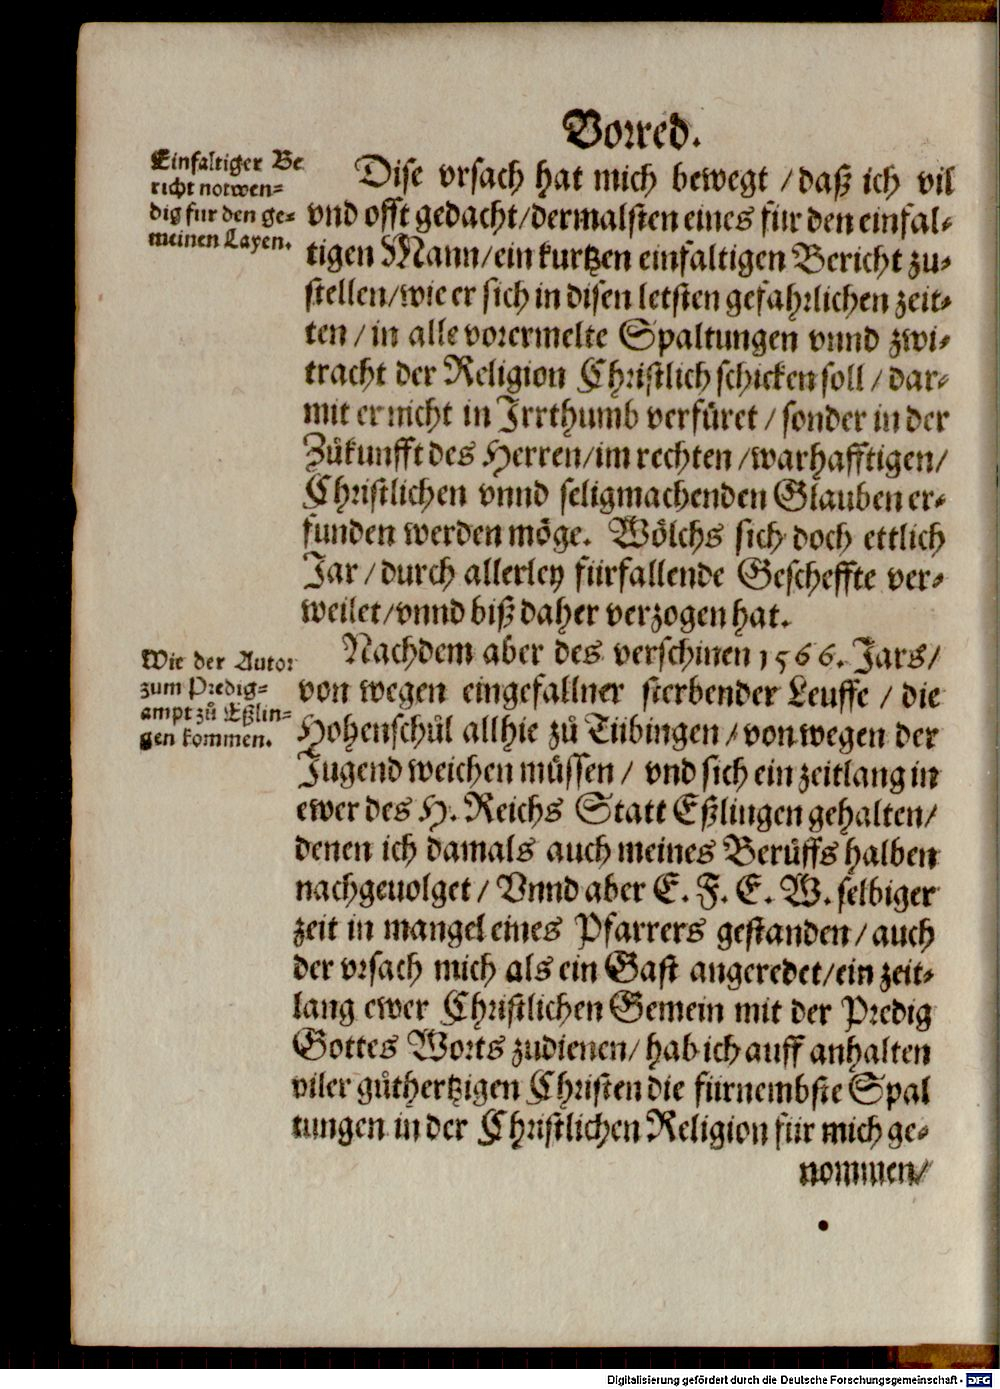 Vorred.
Einfaltiger Be
richt notwen=
dig für den ge=
meinen Layen.
Dise vrsach hat mich bewegt / daß ich vil
vnd offt gedacht/dermalsten eines für den einfal=
tigen Mann/ein kurtzen einfaltigen Bericht zu=
stellen/wie er sich in disen letsten gefahrlichen zeit=
ten / in alle vorermelte Spaltungen vnnd zwi=
tracht der Religion Christlich schicken soll / dar=
mit er nicht in Irrthumb verfüret / sonder in der
Zůkunfft des Herren/im rechten /warhafftigen/
Christlichen vnnd seligmachenden Glauben er=
funden werden möge. Wölchs sich doch ettlich
Jar / durch allerley fürfallende Gescheffte ver=
weilet/vnnd biß daher verzogen hat.
Wie der Autor
zum Predig=
ampt zů Eßlin=
gen kommen.
Nachdem aber des verschinen 1566. Jars/
von wegen eingefallner sterbender Leuffe / die
Hohenschůl allhie zů Tübingen / von wegen der
Jugend weichen müssen / vnd sich ein zeitlang in
ewer des H. Reichs Statt Eßlingen gehalten/
denen ich damals auch meines Berůffs halben
nachgeuolget / Vnnd aber E. F. E. W. selbiger
zeit in mangel eines Pfarrers gestanden / auch
der vrsach mich als ein Gast angeredet/ein zeit=
lang ewer Christlichen Gemein mit der Predig
Gottes Worts zudienen/ hab ich auff anhalten
viler gůthertzigen Christen die fürnembste Spal
tungen in der Christlichen Religion für mich ge=
nommen/
Digitalisierung gefördert durch die Deutsche Forschungsgemeinschaft - DFG